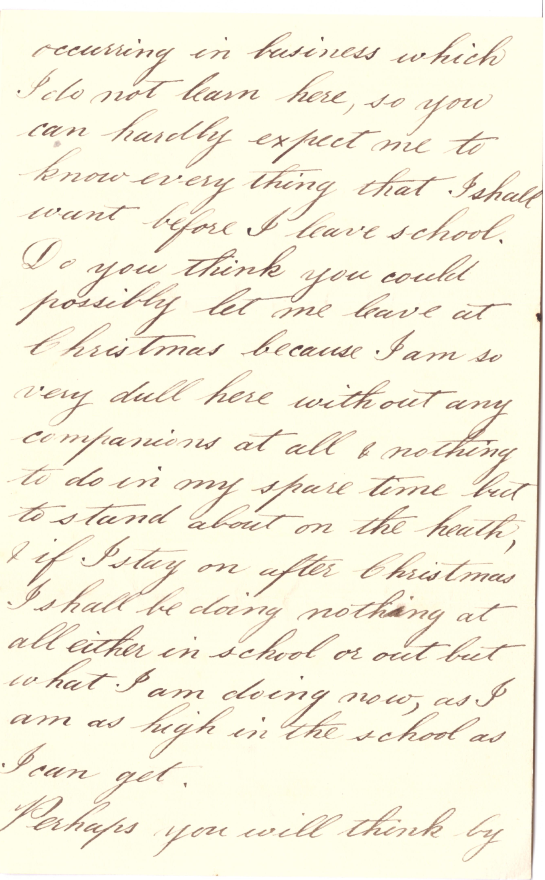 occurring in business which
I do not learn here, so you
can hardly expect me to
know every thing that I shall
want before I leave school.
Do you think you could
possibly let me leave at
Christmas because I am so
very dull here without any
companions at all & nothing
to do in my spare time but
to stand about on the heath,
& if I stay on after Christmas
I shall be doing nothing at
all either in school or out but
what I am doing now, as I
am as high in the school as
I can get.
Perhaps you will think by